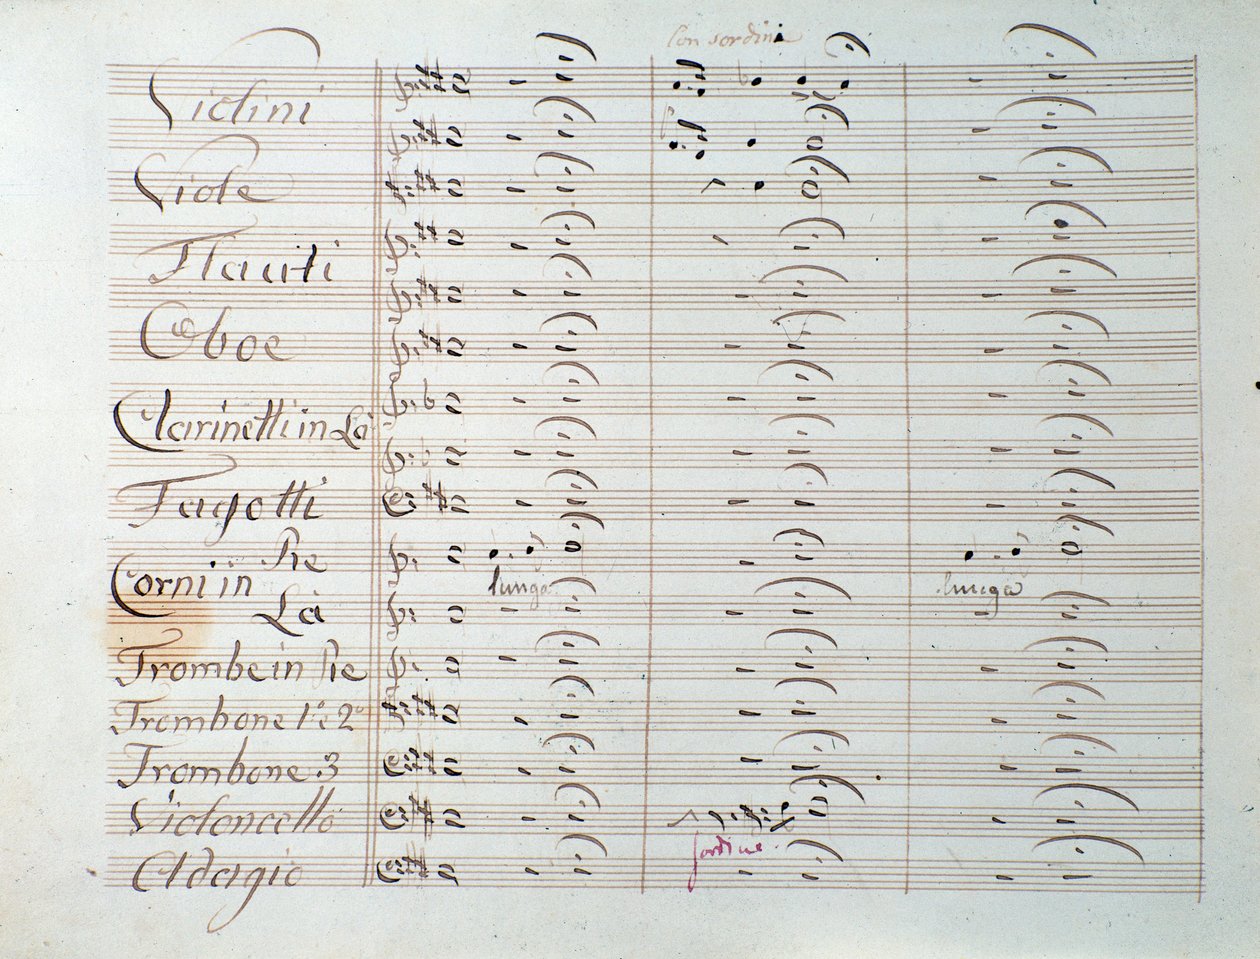 Con sordini
Violini
Viole
Flauti
Oboe
Clarinetti in La
Fagotti
Corni in Re
La
lunga
lunga
Trombe in Re
Trombone 1º e 2º
Trombone 3
Violoncello
Sordine.
Adagio